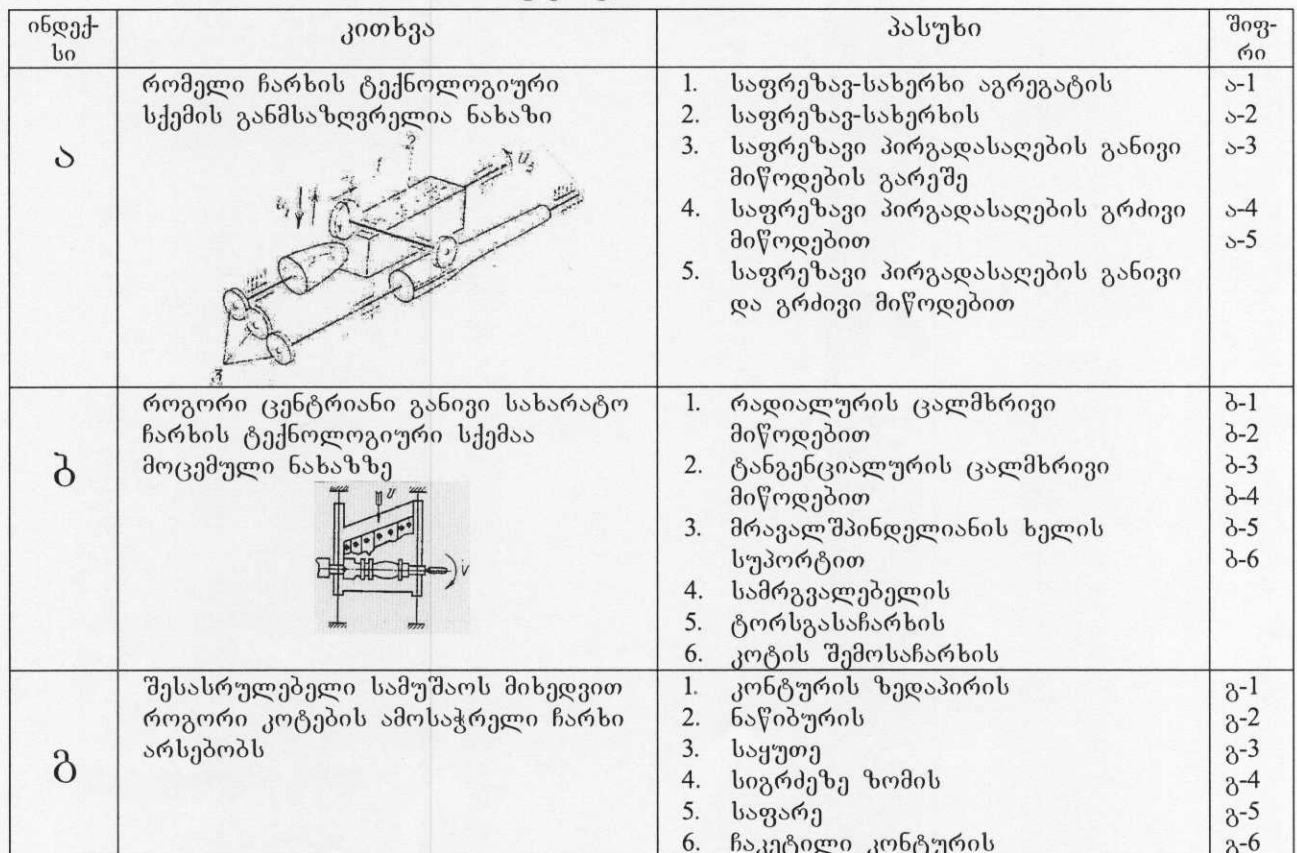 ინდექ-
სი
კითხვა
პასუხი
შიფ-
რი
ა
რომელი ჩარხის ტექნოლოგიური
სქემის განმსაზღვრელია ნახაზი
1
2
3
1. საფრეზავ-სახერხი აგრეგატის
2. საფრეზავ-სახერხის
3. საფრეზავი პირგადასაღების განივი
მიწოდების გარეშე
4. საფრეზავი პირგადასაღების გრძივი
მიწოდებით
5. საფრეზავი პირგადასაღების განივი
და გრძივი მიწოდებით
ა-1
ა-2
ა-3
ა-4
ა-5
ბ
როგორი ცენტრიანი განივი სახარატო
ჩარხის ტექნოლოგიური სქემაა
მოცემული ნახაზზე
u
v
1. რადიალურის ცალმხრივი
მიწოდებით
2. ტანგენციალურის ცალმხრივი
მიწოდებით
3. მრავალშპინდელიანის ხელის
სუპორტით
4. სამრგვალებელის
5. ტორსგასაჩარხის
6. კოტის შემოსაჩარხის
ბ-1
ბ-2
ბ-3
ბ-4
ბ-5
ბ-6
გ
შესასრულებელი სამუშაოს მიხედვით
როგორი კოტების ამოსაჭრელი ჩარხი
არსებობს
1. კონტურის ზედაპირის
2. ნაწიბურის
3. საყუთე
4. სიგრძეზე ზომის
5. საფარე
6. ჩაკეტილი კონტურის
გ-1
გ-2
გ-3
გ-4
გ-5
გ-6